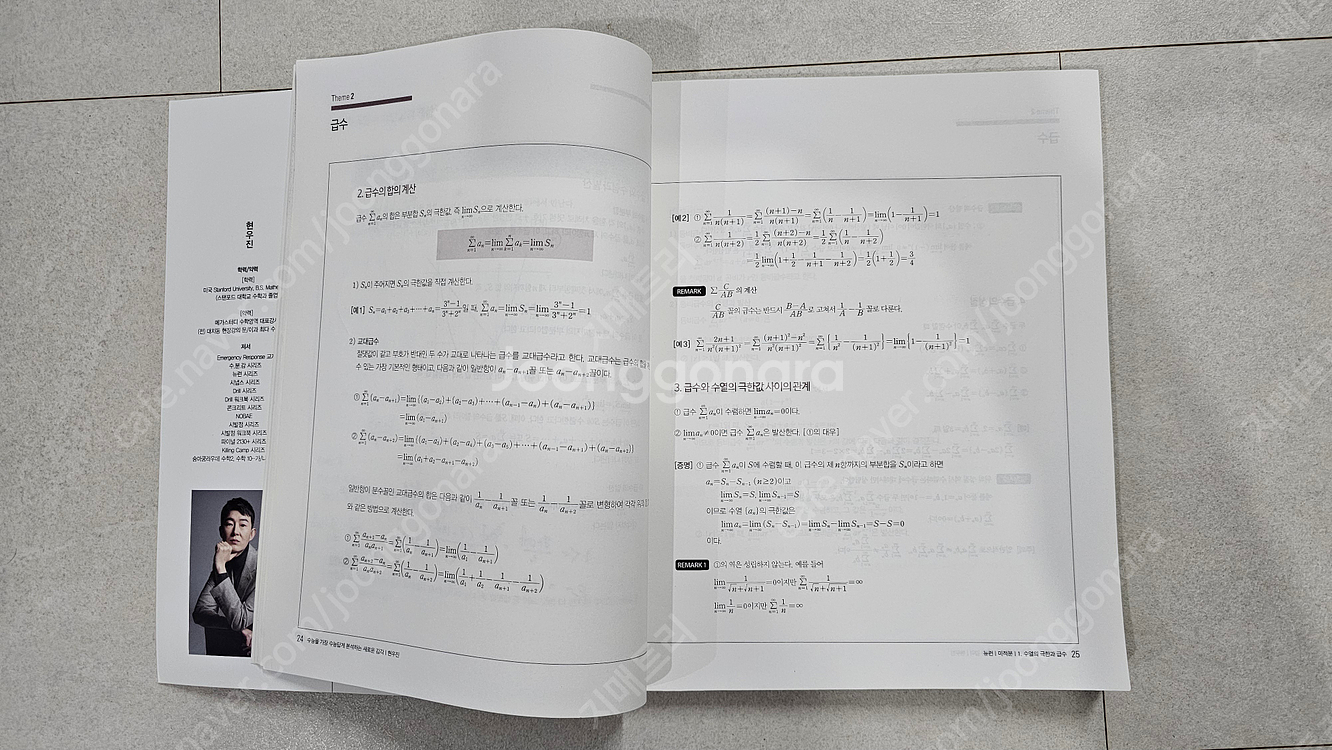 현우진
학력/약력
[학력]
미국 Stanford University, B.S. Mathe
(스탠포드 대학교 수학과 졸업
[약력]
메가스터디 수학영역 대표강사
저서
Emergency Response 교재
수.분.감 시리즈
뉴런 시리즈
시냅스 시리즈
Drill 시리즈
Drill 워크북 시리즈
콘크리트 시리즈
NOBAE
시발점 시리즈
시발점 워크북 시리즈
파이널 2130+ 시리즈
Killing Camp 시리즈
Theme 2
급수
2. 급수의 합의 계산
급수 ∑_{n=1}^{∞} a_n의 합은 부분합 S_n의 극한값, 즉 lim_{n→∞} S_n으로 계산한다.
∑_{n=1}^{∞} a_n = lim_{n→∞} ∑_{k=1}^{n} a_k = lim_{n→∞} S_n
1) S_n이 주어지면 S_n의 극한값을 직접 계산한다.
[예1] S_n=a_1+a_2+a_3+⋯+a_n=(3^n-1)/(3^n+2^n)일 때, ∑_{n=1}^{∞} a_n=lim_{n→∞} S_n=lim_{n→∞} (3^n-1)/(3^n+2^n)=1
2) 교대급수
절댓값이 같고 부호가 반대인 두 수가 교대로 나타나는 급수를 교대급수라고 한다. 교대급수는 급수의
수 있는 가장 기본적인 형태이고, 다음과 같이 일반항이 a_n-a_{n+1}꼴 또는 a_n-a_{n+2}꼴이다.
① ∑_{n=1}^{∞}(a_n-a_{n+1})=lim_{n→∞}{(a_1-a_2)+(a_2-a_3)+⋯+(a_{n-1}-a_n)+(a_n-a_{n+1})}
=lim_{n→∞}(a_1-a_{n+1})
② ∑_{n=1}^{∞}(a_n-a_{n+2})=lim_{n→∞}{(a_1-a_3)+(a_2-a_4)+(a_3-a_5)+⋯+(a_{n-1}-a_{n+1})+(a_n-a_{n+2})}
=lim_{n→∞}(a_1+a_2-a_{n+1}-a_{n+2})
일반항이 분수꼴인 교대급수의 합은 다음과 같이 1/a_n-1/a_{n+1}꼴 또는 1/a_n-1/a_{n+2}꼴로 변형하여 각각 위의
와 같은 방법으로 계산한다.
① ∑_{n=1}^{∞} (a_{n+1}-a_n)/(a_n a_{n+1})=∑_{n=1}^{∞}(1/a_n-1/a_{n+1})=lim_{n→∞}(1/a_1-1/a_{n+1})
② ∑_{n=1}^{∞} (a_{n+2}-a_n)/(a_n a_{n+2})=∑_{n=1}^{∞}(1/a_n-1/a_{n+2})=lim_{n→∞}(1/a_1+1/a_2-1/a_{n+1}-1/a_{n+2})
24 수능을 가장 수능답게 분석하는 새로운 감각 | 현우진
[예2] ① ∑_{n=1}^{∞} 1/(n(n+1))=∑_{n=1}^{∞} ((n+1)-n)/(n(n+1))=∑_{n=1}^{∞}(1/n-1/(n+1))=lim_{n→∞}(1-1/(n+1))=1
② ∑_{n=1}^{∞} 1/(n(n+2))=1/2 ∑_{n=1}^{∞} ((n+2)-n)/(n(n+2))=1/2 ∑_{n=1}^{∞}(1/n-1/(n+2))
=1/2 lim_{n→∞}(1+1/2-1/(n+1)-1/(n+2))=1/2(1+1/2)=3/4
REMARK ∑ C/AB의 계산
C/AB 꼴의 급수는 반드시 (B-A)/AB로 고쳐서 1/A-1/B 꼴로 다룬다.
[예3] ∑_{n=1}^{∞} (2n+1)/(n²(n+1)²)=∑_{n=1}^{∞} ((n+1)²-n²)/(n²(n+1)²)=∑_{n=1}^{∞}{1/n²-1/(n+1)²}=lim_{n→∞}{1-1/(n+1)²}=1
3. 급수와 수열의 극한값 사이의 관계
① 급수 ∑_{n=1}^{∞} a_n이 수렴하면 lim_{n→∞} a_n=0이다.
② lim_{n→∞} a_n≠0이면 급수 ∑_{n=1}^{∞} a_n은 발산한다. [①의 대우]
[증명] ① 급수 ∑_{n=1}^{∞} a_n이 S에 수렴할 때, 이 급수의 제 n항까지의 부분합을 S_n이라고 하면
a_n=S_n-S_{n-1} (n≥2)이고
lim_{n→∞} S_n=S, lim_{n→∞} S_{n-1}=S
이므로 수열 {a_n}의 극한값은
lim_{n→∞} a_n=lim_{n→∞}(S_n-S_{n-1})=lim_{n→∞} S_n-lim_{n→∞} S_{n-1}=S-S=0
이다.
REMARK 1 ①의 역은 성립하지 않는다. 예를 들어
lim_{n→∞} 1/(√n+√n+1)=0이지만 ∑_{n=1}^{∞} 1/(√n+√n+1)=∞
lim_{n→∞} 1/n=0이지만 ∑_{n=1}^{∞} 1/n=∞
뉴런 | 미적분 | 1. 수열의 극한과 급수 25
Joonggonara